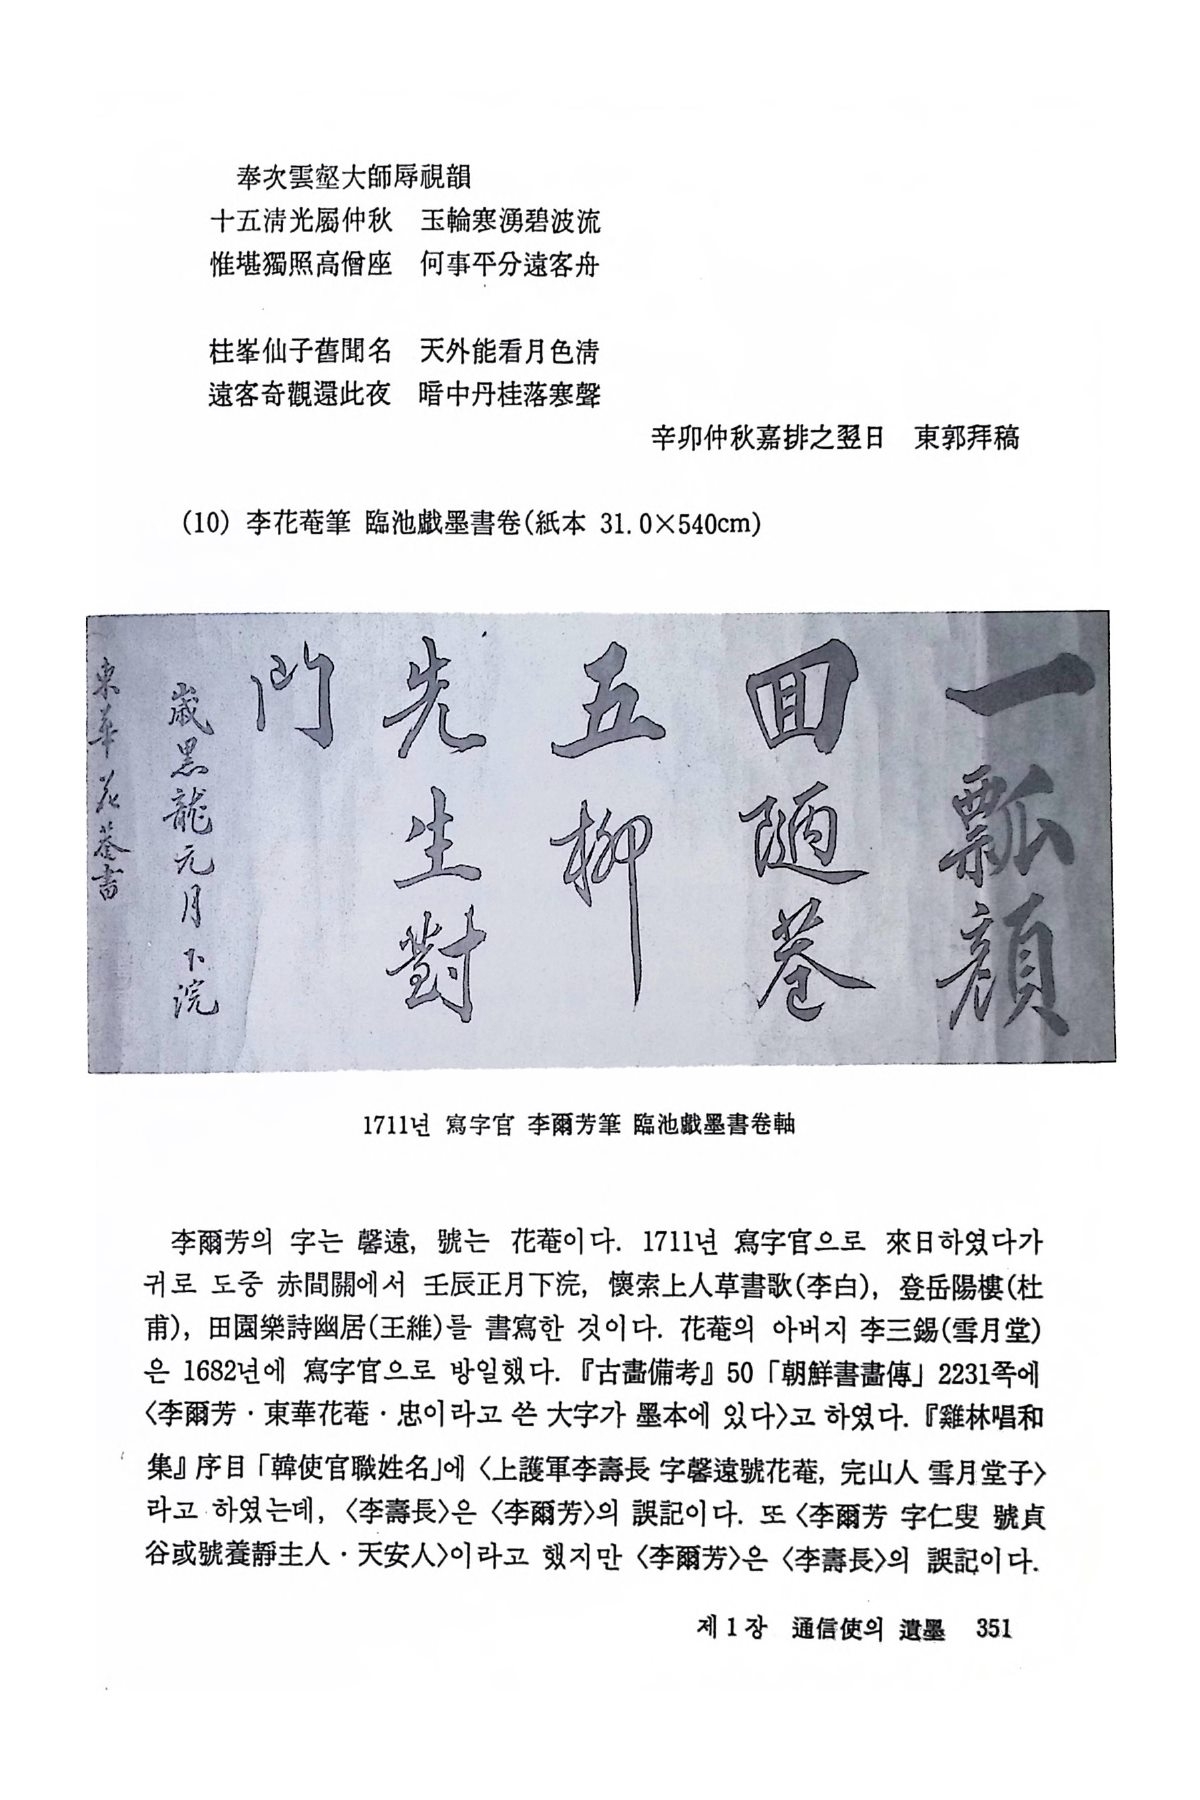 奉次雲壑大師辱視韻
十五淸光屬仲秋 玉輪寒湧碧波流
惟堪獨照高僧座 何事平分遠客舟
桂峯仙子舊聞名 天外能看月色淸
遠客奇觀還此夜 暗中丹桂落寒聲
辛卯仲秋嘉排之翌日 東郭拜稿
(10) 李花菴筆 臨池戱墨書卷(紙本 31.0×540cm)
一瓢顔
回陋巷
五柳
先生對
門
歲黑龍元月下浣
東華花菴書
1711년 寫字官 李爾芳筆 臨池戱墨書卷軸
李爾芳의 字는 馨遠, 號는 花菴이다. 1711년 寫字官으로 來日하였다가
귀로 도중 赤間關에서 壬辰正月下浣, 懷素上人草書歌(李白), 登岳陽樓(杜
甫), 田園樂詩幽居(王維)를 書寫한 것이다. 花菴의 아버지 李三錫(雪月堂)
은 1682년에 寫字官으로 방일했다. 『古畵備考』 50 「朝鮮書畵傳」 2231쪽에
〈李爾芳·東華花菴·忠이라고 쓴 大字가 墨本에 있다〉고 하였다. 『雞林唱和
集』 序目 「韓使官職姓名」에 〈上護軍李壽長 字馨遠號花菴, 完山人 雪月堂子〉
라고 하였는데, 〈李壽長〉은 〈李爾芳〉의 誤記이다. 또 〈李爾芳 字仁叟 號貞
谷或號養靜主人·天安人〉이라고 했지만 〈李爾芳〉은 〈李壽長〉의 誤記이다.
제1장 通信使의 遺墨 351